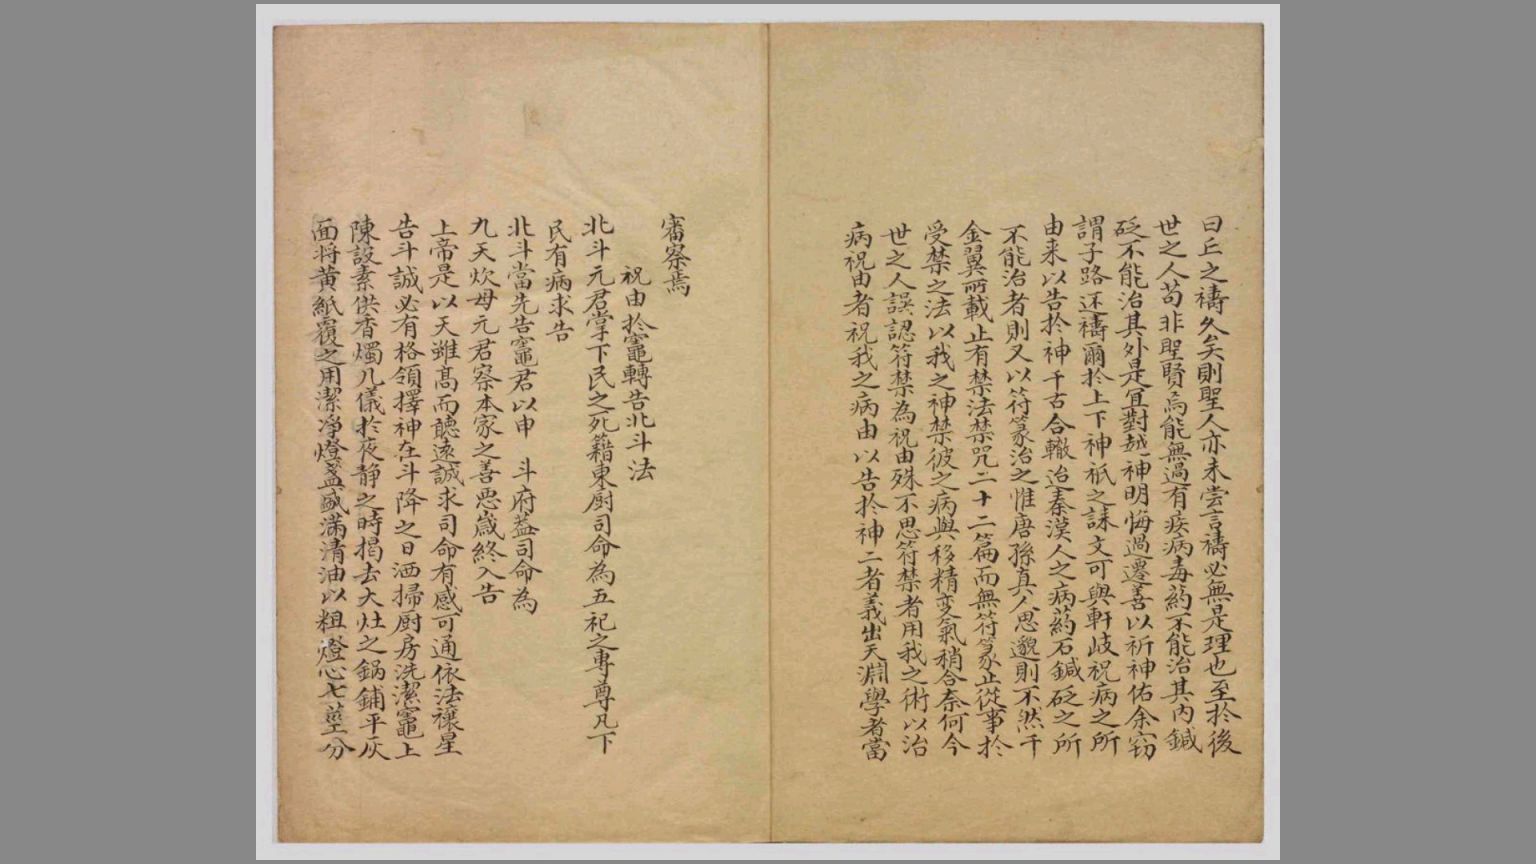 曰丘之禱久矣則聖人亦未嘗言禱必無是理也至於後
世之人苟非聖賢烏能無過有疾病毒葯不能治其內鍼
砭不能治其外是宜對越神明悔過遷善以祈神佑余窃
謂子路还禱爾於上下神祇之誄文可與軒岐祝病之所
由来以告於神千古合轍迨秦漢人之病葯石鍼砭之所
不能治者則又以符篆治之惟唐孫真人思邈則不然千
金翼所載止有禁法禁咒二十二篇而無符篆止從事於
受禁之法以我之神禁彼之病與移精变氣稍合奈何今
世之人誤認符禁為祝由殊不思符禁者用我之術以治
病祝由者祝我之病由以告於神二者義出天淵學者當
審察焉
祝由於竈轉告北斗法
北斗元君掌下民之死籍東厨司命為五祀之專尊凡下
民有病求告
北斗當先告竈君以申 斗府葢司命為
九天炊母元君察本家之善惡歲終入告
上帝是以天雖髙而聽遠誠求司命有感可通依法禳星
告斗誠必有格領擇神在斗降之日洒掃厨房洗潔竈上
陳設素供香燭几儀於夜静之時揭去大灶之鍋鋪平灰
面将黄紙覆之用潔净燈盞盛滿清油以粗燈心七莖分